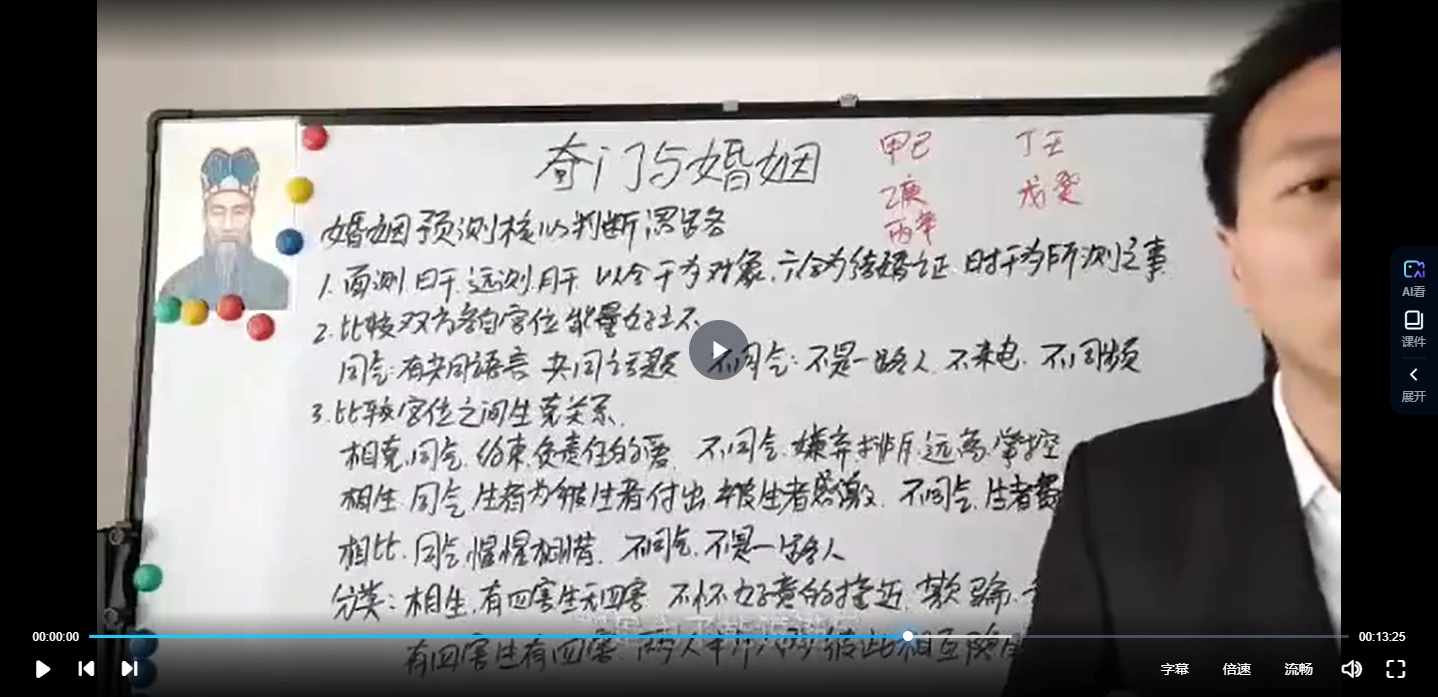 奇门与婚姻
甲己 丁壬
乙庚 戊癸
丙辛
婚姻预测核心判断思路
1.面测.日干.远测.月干.以合干为对象.六合为结婚证.时干为所测之事
2.比较双方各自宫位能量好坏
同气:有共同语言 共同话题 不同气:不是一路人.不来电.不同频
3.比较宫位之间生克关系.
相克.同气.约束.负责任的爱. 不同气.嫌弃.排斥.远离.掌控
相生.同气.生者为被生者付出.被生者感激. 不同气.生者
相比.同气.惺惺相惜. 不同气.不是一路人
分类:相生.有四害生无四害 不怀好意的接近.欺骗.
有四害生有四害.两人半斤八两.彼此相互
AI看
课件
展开
00:00:00 00:13:25
字幕 倍速 流畅